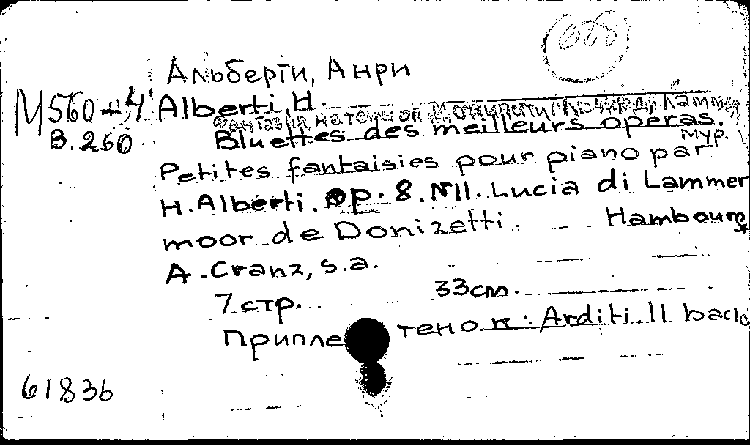 Альберти, Анри
М560-4
В.260
Alberti, H.
Фантазия на темы из
Bluettes des meilleurs operas.
Petites fantaisies pour piano par
H. Alberti. op. 8. N11. Lucia di Lammer
moor de Donizetti. Hambourg
A. Cranz, s.a.
7 стр. 33см.
Припле тено к: Arditi. Il bacio
61836